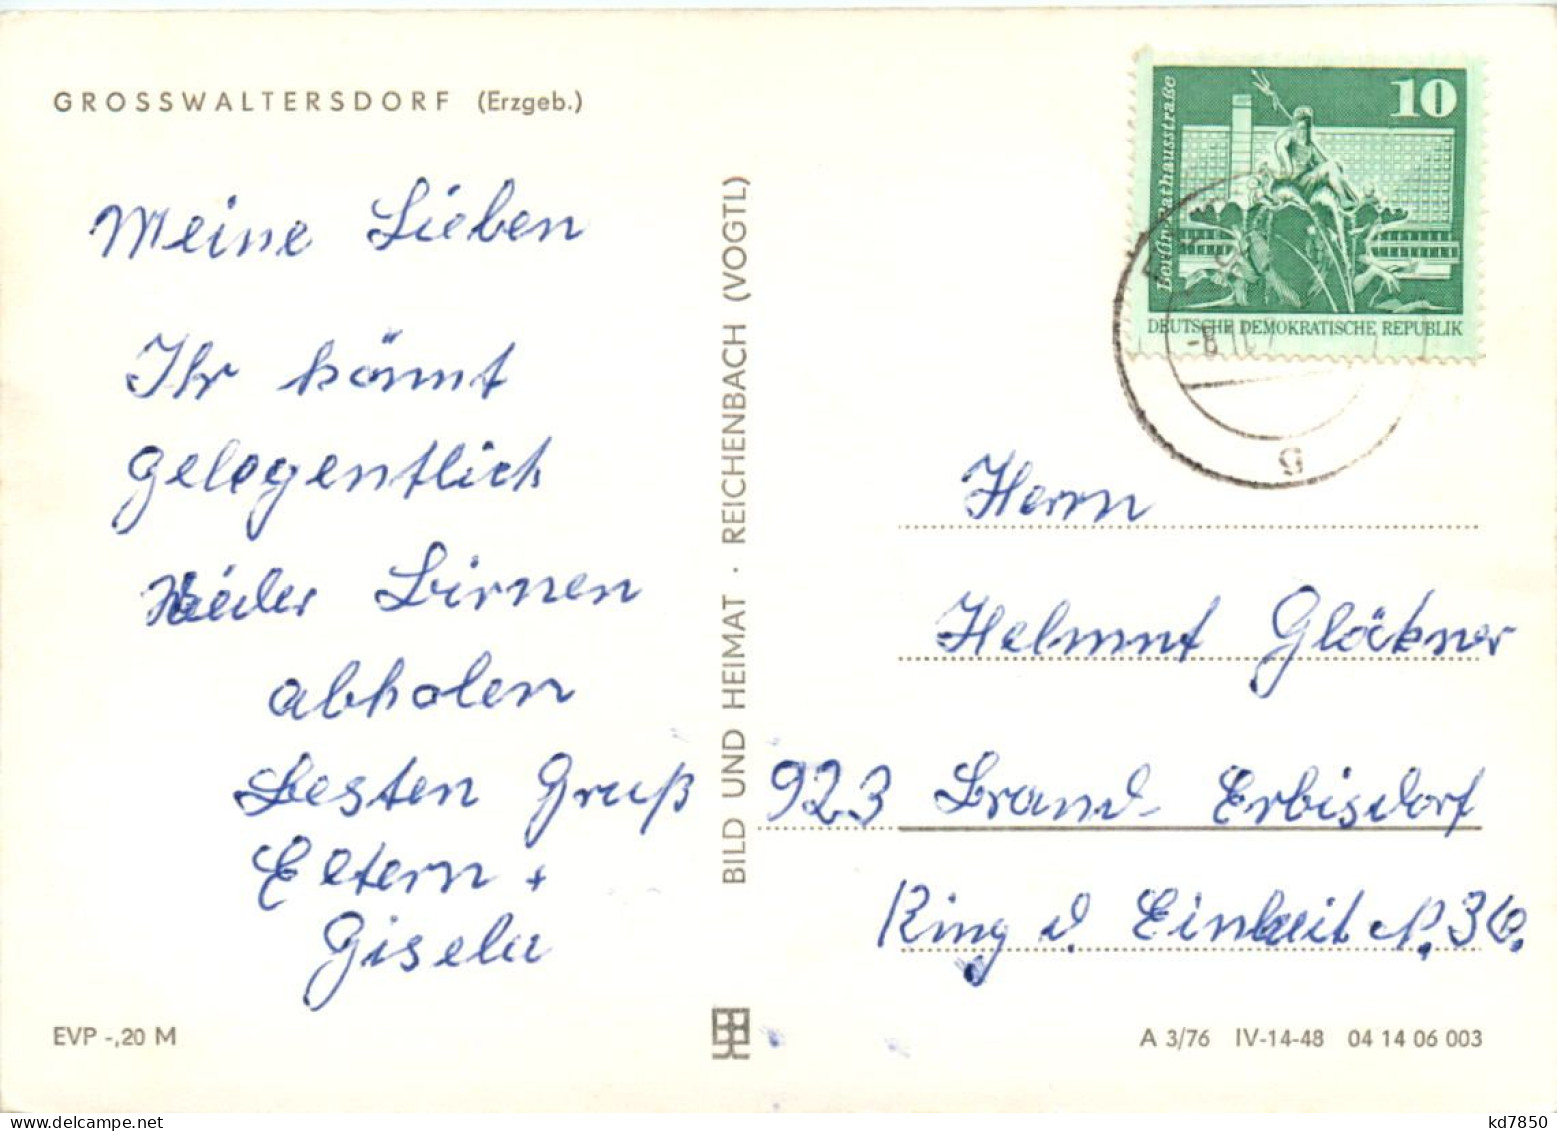 GROSSWALTERSDORF (Erzgeb.)
Meine Lieben
Ihr könnt
gelegentlich
wieder Birnen
abholen
Besten Gruß
Eltern +
Gisela
EVP -,20 M
BILD UND HEIMAT · REICHENBACH (VOGTL)
10
DEUTSCHE DEMOKRATISCHE REPUBLIK
Herrn
Helmut Glöckner
923 Brand-Erbisdorf
Ring d Einheit N. 36.
A 3/76 IV-14-48 04 14 06 003
kd7850